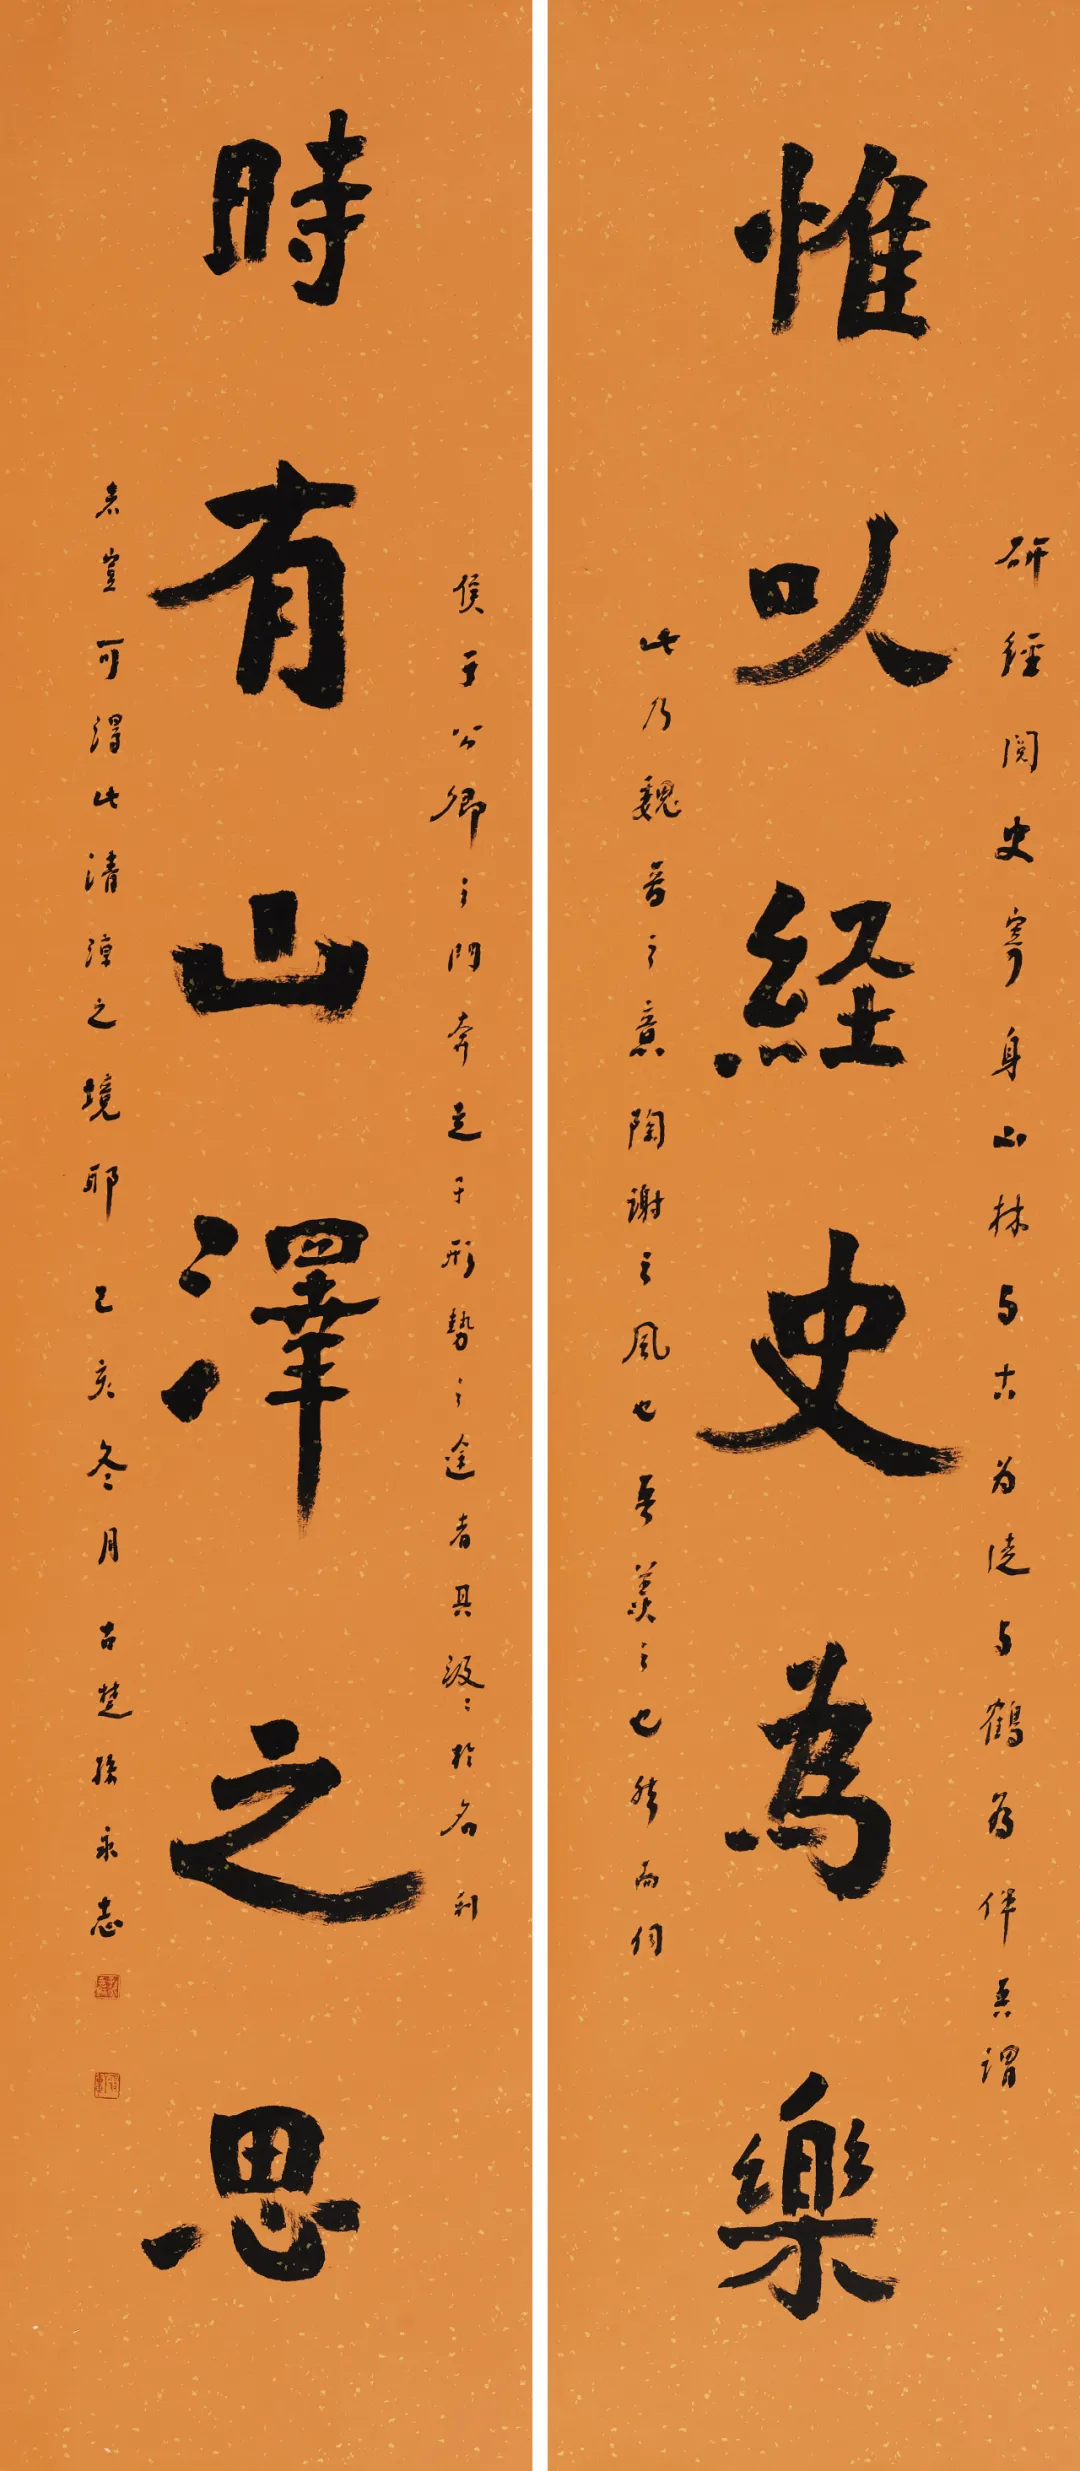 惟以経史為樂
研經閱史寄身山林与古为徒与鶴为伴吾謂
此乃魏晉之意陶谢之風也吾羡之也然而伺
時有山澤之思
侯王公卿之門奔走于形勢之途者具汲汲於名利
者豈可得此清涼之境耶 己亥冬月 古楚孫永志